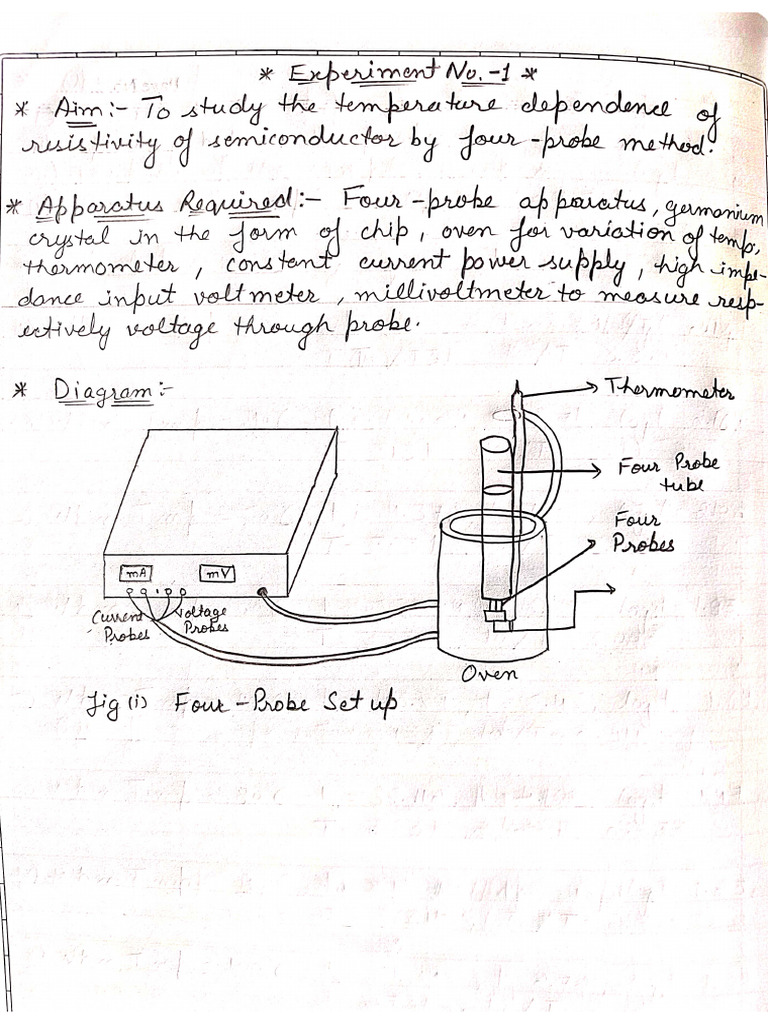 * Experiment No.-1 *
* Aim:- To study the temperature dependence of
resistivity of semiconductor by four-probe method.
* Apparatus Required:- Four-probe apparatus, germanium
crystal in the form of chip, oven for variation of temp,
thermometer, constant current power supply, high impe-
dance input voltmeter, millivoltmeter to measure resp-
ectively voltage through probe.
* Diagram:-
Thermometer
Four Probe
tube
Four
Probes
mA
mV
Current
Probes
Voltage
Probes
Oven
Fig (i) Four-Probe Set up